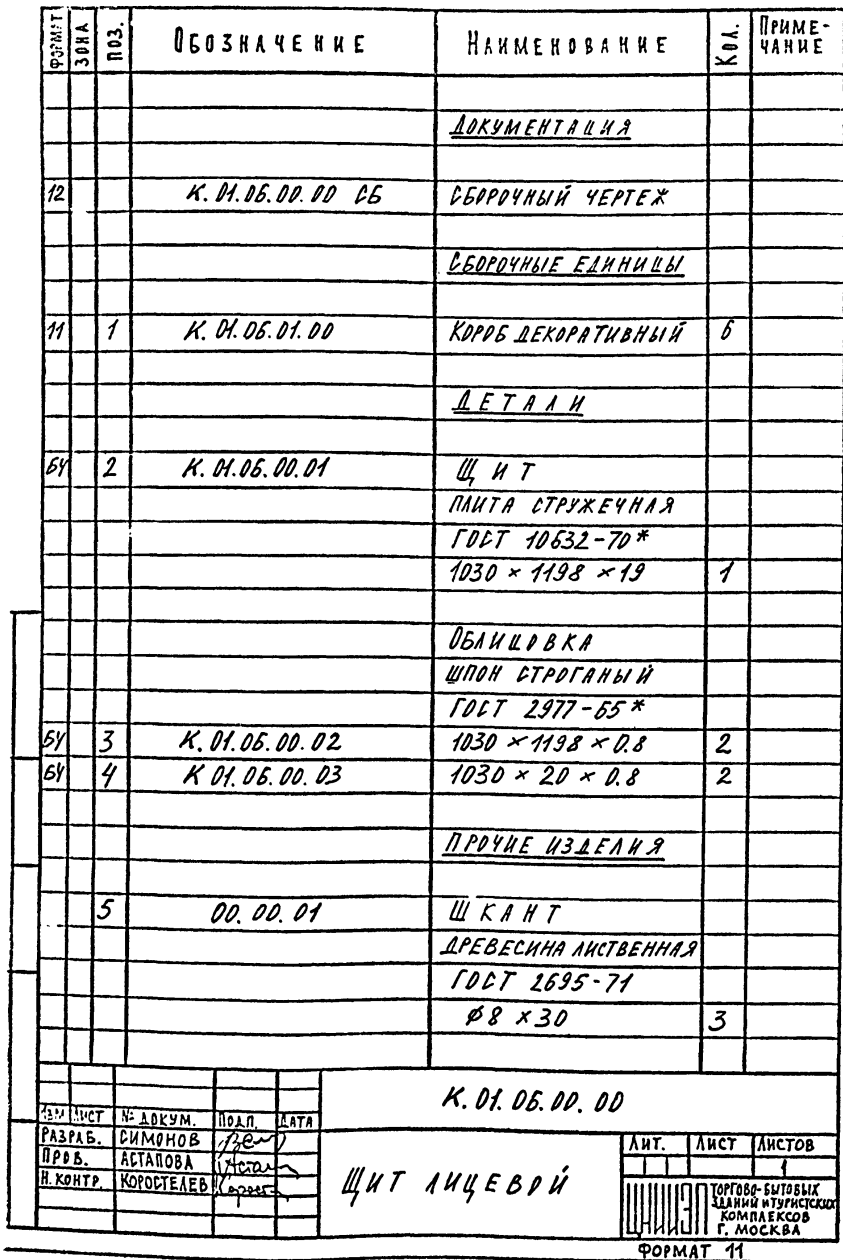 ФОРМАТ ЗОНА ПОЗ. ОБОЗНАЧЕНИЕ НАИМЕНОВАНИЕ КОЛ. ПРИМЕ-
ЧАНИЕ
ДОКУМЕНТАЦИЯ
12 К.01.06.00.00 СБ СБОРОЧНЫЙ ЧЕРТЕЖ
СБОРОЧНЫЕ ЕДИНИЦЫ
11 1 К.01.06.01.00 КОРОБ ДЕКОРАТИВНЫЙ 6
ДЕТАЛИ
БЧ 2 К.01.06.00.01 ЩИТ
ПЛИТА СТРУЖЕЧНАЯ
ГОСТ 10632-70*
1030 × 1198 × 19 1
ОБЛИЦОВКА
ШПОН СТРОГАНЫЙ
ГОСТ 2977-65*
БЧ 3 К.01.06.00.02 1030 × 1198 × 0.8 2
БЧ 4 К 01.06.00.03 1030 × 20 × 0.8 2
ПРОЧИЕ ИЗДЕЛИЯ
5 00.00.01 ШКАНТ
ДРЕВЕСИНА ЛИСТВЕННАЯ
ГОСТ 2695-71
Ø8 × 30 3
К.01.06.00.00
ИЗМ ЛИСТ № ДОКУМ. ПОДП. ДАТА
РАЗРАБ. СИМОНОВ
ПРОВ. АСТАПОВА
Н.КОНТР. КОРОСТЕЛЕВ
ЩИТ ЛИЦЕВОЙ
ЛИТ. ЛИСТ ЛИСТОВ
1
ЦНИИЭП ТОРГОВО-БЫТОВЫХ
ЗДАНИЙ И ТУРИСТСКИХ
КОМПЛЕКСОВ
Г. МОСКВА
ФОРМАТ 11